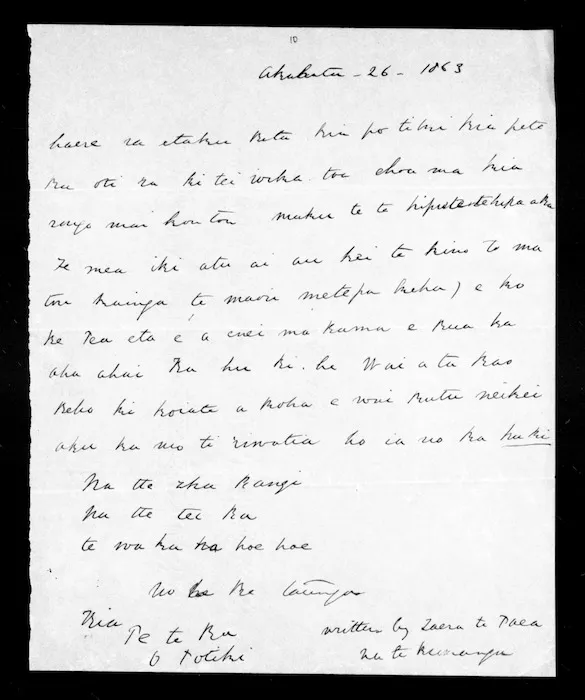 10
Akuhata - 26 - 1863
haere ra etaku reta kia po tiki kia pete
ka oti ra ki tei wika toa chou ma kia
rongo mai kou tou maku te te
Te mea iki atu ai au kei te kino to ma
tou kainga te maori metepa keha) e ko
ke Tea eta e a enei ma kama e kua ka
aha ahai Ka hu ki. he Wai a ta kao
keho ki koiate a koha e wai kutu neikei
aku ka mo ti riwatia ho ia no ka huki
Na tte aka Rangi
Na tte tei ka
te wa ka ka hoe hoe
no Ke Taunga
Kia
Te te Ka
O Totiki
written by Taera te Taea
na te Runanga